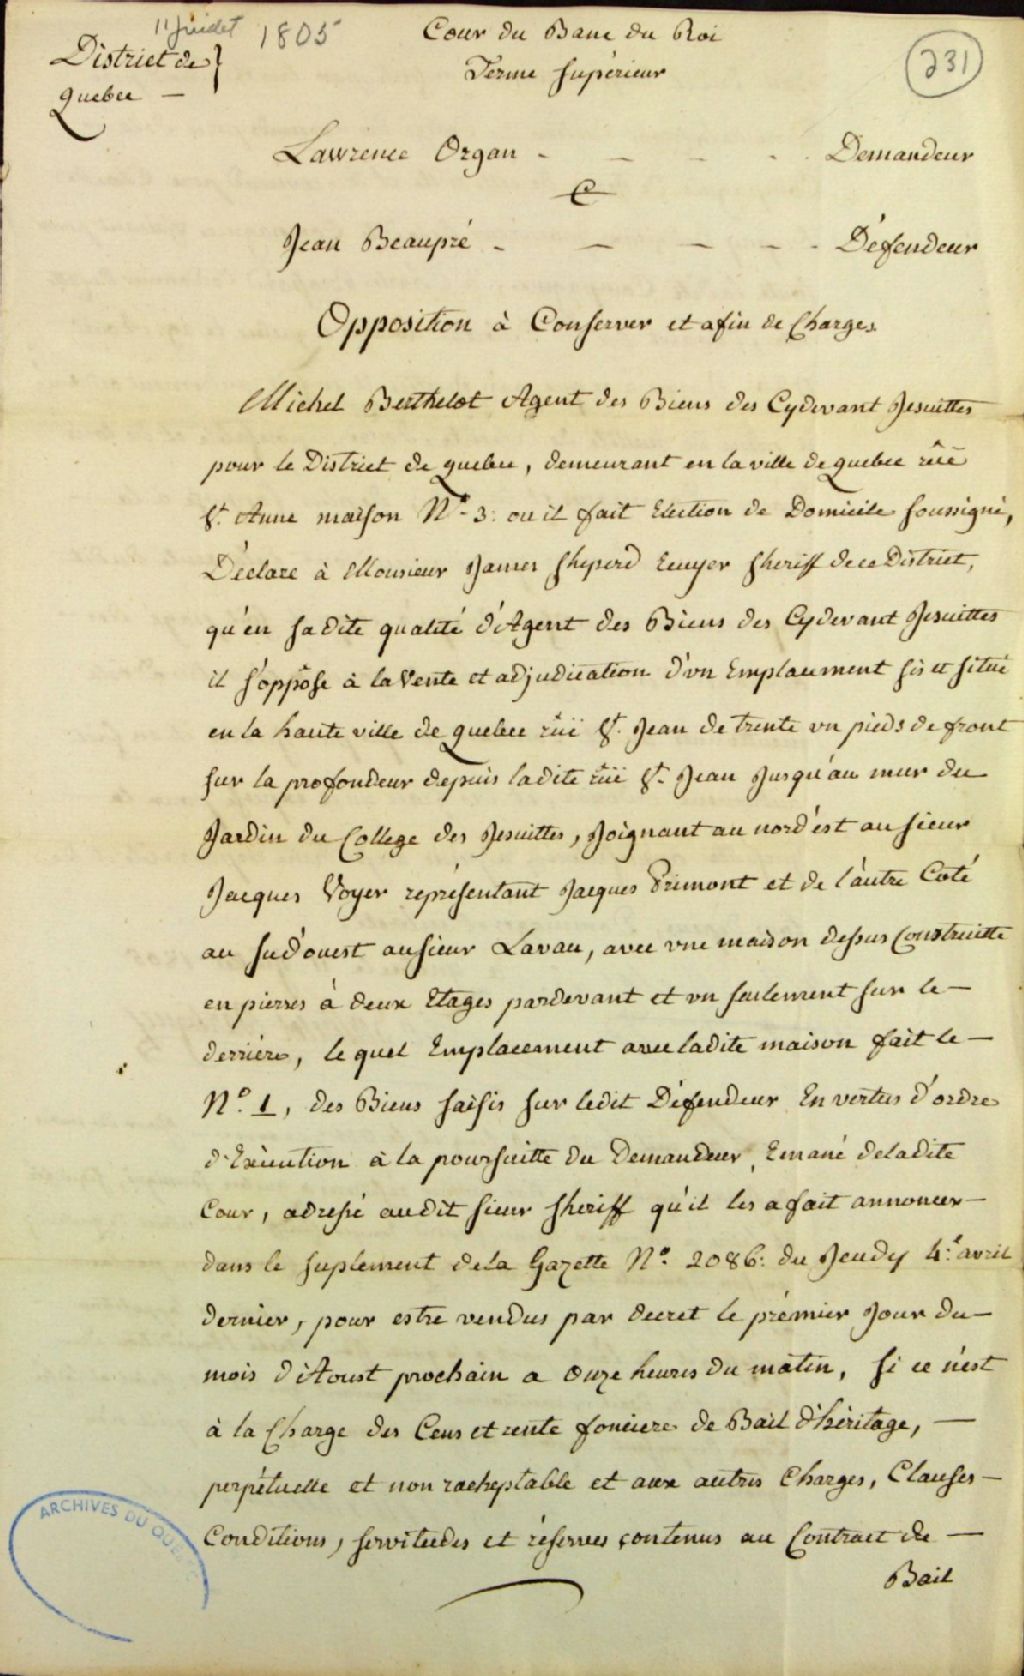 11 Juillet 1805
Cour du Banc du Roi
231
District de }
Terme supérieur
Quebec —
Lawrence Organ - - - - Demandeur
C
Jean Beaupré - - - - - Défendeur
Opposition à Conserver et afin de Charges
Michel Berthelot Agent des Biens des Cydevant Jesuittes
pour le District de quebec, demeurant en la ville de quebec rüe
St. Anne maison No. 3: ou il fait Election de Domicile soussigné,
Déclare à Monsieur James Sheperd Ecuyer Sheriff de ce District,
qu'en sa dite qualité d'Agent des Biens des Cydevant Jesuittes
il s'oppose à la Vente et adjudication d'vn Emplacement sis et situé
en la haute ville de Quebec rüe St. Jean de trente vn pieds de front
sur la profondeur depuis ladite rüe St. Jean Jusqu'au mur du
Jardin du College des Jesuittes, Joignant au nord'est au sieur
Jacques Voyer représentant Jacques Primont et de l'autre Coté
au sud'ouest au sieur Lavau, avec vne maison dessus Construitte
en pierres à deux Etages pardevant et vn seulement sur le —
derriere, le quel Emplacement avec ladite maison fait le —
No. 1, des Biens saisis sur ledit Défendeur En vertus d'ordre
d'Exécution à la poursuitte du Demandeur, Emané deladite
Cour, adressé audit sieur Sheriff qu'il les a fait annoncer —
dans le suplement dela Gazette No. 2086: du Jeudy 4: avril
dernier, pour estre vendus par decret le prémier Jour du —
mois d'Aoust prochain a onze heures du matin, si ce n'est
à la Charge des Cens et rente fonciere de Bail d'héritage, —
perpétuelle et non racheptable et aux autres Charges, Clauses —
Conditions, servitudes et réserves contenus au Contract de —
Bail
ARCHIVES DU QUÉBEC